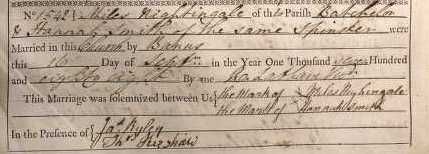 No. 1542 } Miles Nightingale of the Parish Batchelor
& Hannah Smith of the same Spinster were
Married in this Church by Banns
this 16 Day of Sept. in the Year One Thousand Hundred
and eighty eight By me
This Marriage was solemnized between Us { the Mark of Miles Nightingale
the Mark of Hannah Smith
In the Presence of { Jas. Ryley
Thos. Kershaw